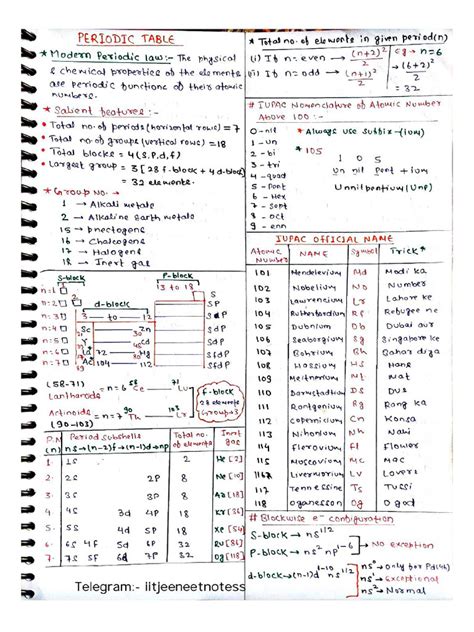 PERIODIC TABLE
* Modern Periodic law:- The physical
& chemical properties of the elements
are periodic functions of their atomic
numbers.
* Salient features:-
* Total no. of periods (horizontal rows) = 7
* Total no. of groups (vertical rows) = 18
* Total blocks = 4 (S, P, d, f)
* Largest group = 3 [28 f-block + 4 d-block]
= 32 elements.
* Group No. →
1 → Alkali metals
2 → Alkaline Earth metals
15 → pnectogens
16 → Chalcogens
17 → Halogens
18 → Inert gas
S-block
P-block
13 to 18
n=1
n=2
n=3
n=4
n=5
n=6
n=7
d-block
3 → to → 12
Sc Zn
Y Cd
La 72 Hg
Ac
S
SP
SP
SdP
SdP
SfdP
SfdP
(58-71)
Lanthanoids = n=6 58 Ce — 71 Lu
Actinoids = n=7 90 Th — 103 Lr
(90-103)
f-block
28 elements
Group → 3
P.N (n) Period Subshells ns→(n-2)f→(n-1)d→np Total no. of elements Inert gas
1. 1S 2 He [2]
2. 2S 2P 8 Ne [10]
3. 3S 3P 8 Ar [18]
4. 4S 3d 4P 18 Kr [36]
5. 5S 4d 5P 18 Xe [54]
6. 6S 4f 5d 6P 32 Ru [86]
7. 7S 5f 6d 7P 32 Og [118]
* Total no. of elements in given period (n)
(i) If n = even → (n+2)²/2
(ii) If n = odd → (n+1)²/2
eg → n=6
→ (6+2)²/2
= 32
# IUPAC Nomenclature of Atomic Number
Above 100:-
0 - nil
1 - un
2 - bi
3 - tri
4 - quad
5 - pent
6 - Hex
7 - Sept
8 - oct
9 - enn
* Always use suffix - (ium)
* 105
1 0 5
Un nil Pent + ium
Unnilpentium (Unp)
IUPAC OFFICIAL NAME
Atomic Number NAME Symbol Trick*
101 Mendelevium Md Modi ka
102 Nobelium No Number
103 Lawrencium Lr Lahore ke
104 Rutherfordium Rf Refugee ne
105 Dubnium Db Dubai aur
106 Seaborgium Sg Singapore ke
107 Bohrium Bh Bahar diya
108 Hassium Hs
109 Meitnerium Mt
110 Darmstadtium Ds
111 Rontgenium Rg Rang ka
112 Copernicium Cn Kantos
113 Nihonium Nh Nahi
114 Flerovium Fl Flower
115 Moscovium Mc MAC
116 Livermorium Lv Lovers
117 Tennessine Ts Tussi
118 Oganesson Og O god
# Blockwise e⁻ configuration
S-block → ns¹⁻²
P-block → ns² np¹⁻⁶
→ No exception
d-block → (n-1)d¹⁻¹⁰ ns¹⁻²
ns⁰ → only for Pd(46)
ns¹ → exceptional
ns² → Normal
Telegram:- iitjeeneetnotess